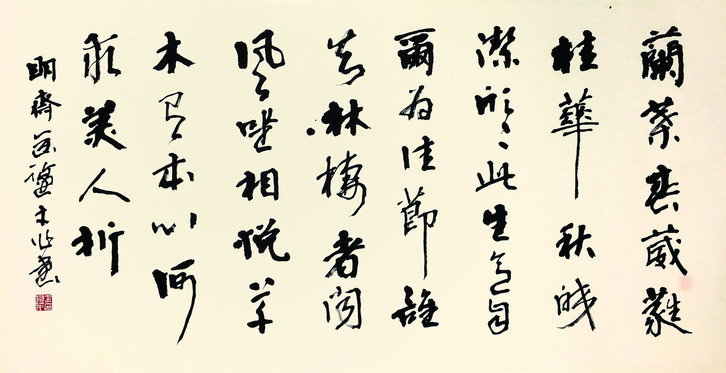 蘭葉春葳蕤
桂華秋皎
潔欣〻此生意自
爾为佳節誰
知林棲者聞
風坐相悅草
木有本心何
求美人折
明齋